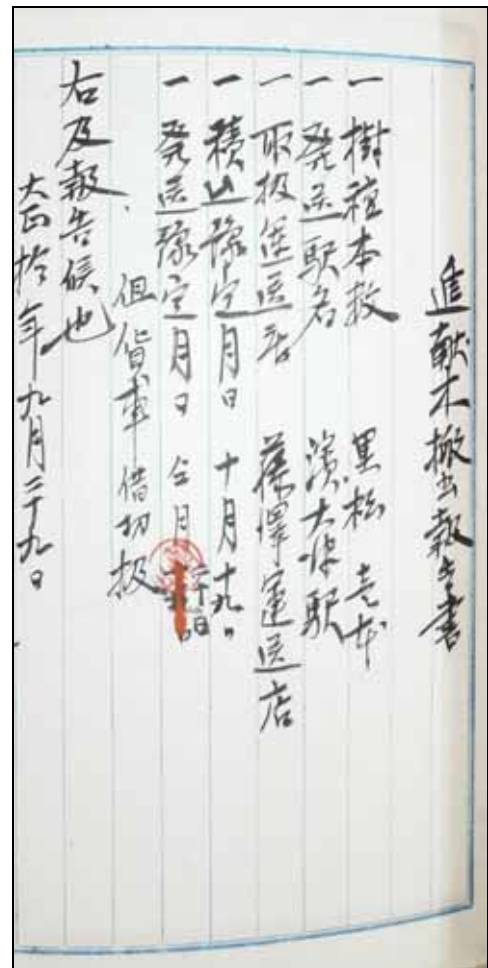 進献木搬出報告書
一樹種本数 黒松 壱本
一発送駅名 濱大津駅
一取扱運送店 藤澤運送店
一積込豫定月日 十月十九日
一発送豫定月日 仝月二十日
但貨車借切扱
右及報告候也
大正拾年九月二十九日